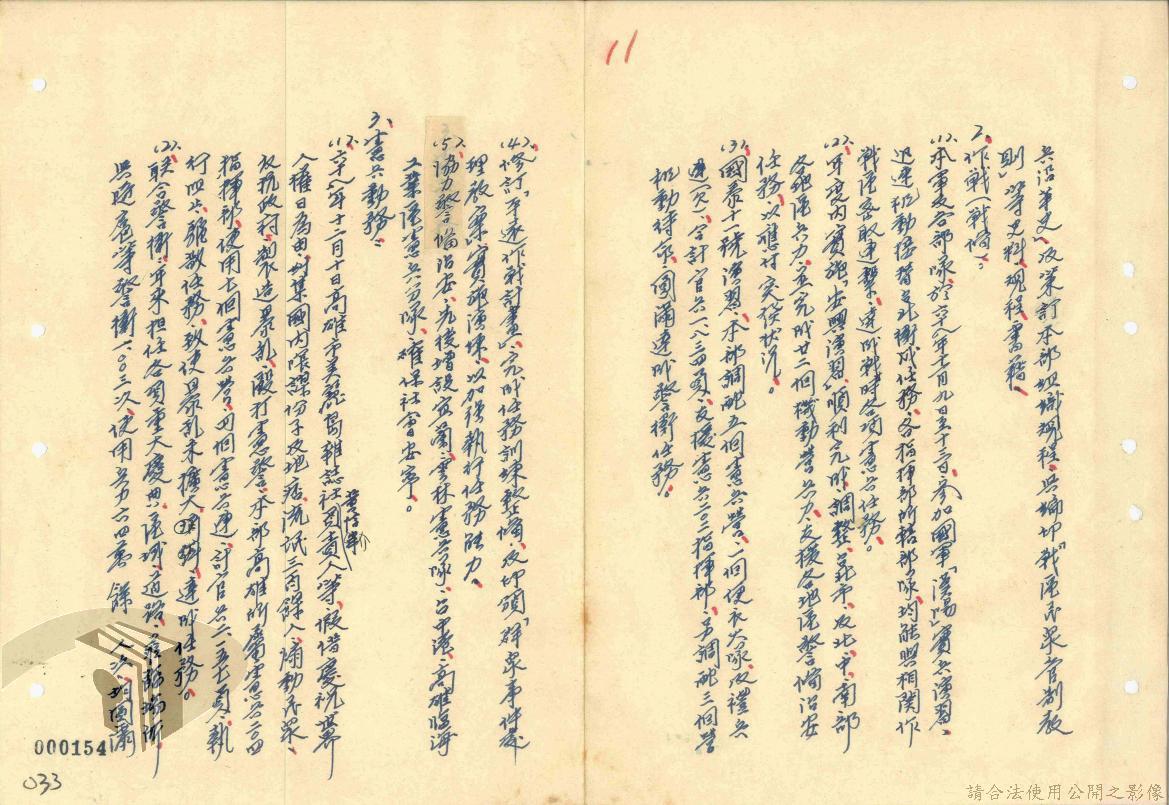 11
兵沿革史」及策訂本部組織規程、與編印「戰地民眾管制教
則」等史料、規程書籍。
2.作戰(戰備)。
(1)本軍及各部隊、於六八年七月九日至十三日、參加國軍「漢陽」實兵演習、
迅速機動接替北衛戍任務、各指揮部所轄部隊、均能與相關作
戰區密取連繫、達成戰時各項憲兵任務。
(2)年度內實施「安興演習」順利完成調整、北市、及北、中、南部
各地區兵力、並完成廿二個機動營兵力、支援各地區警備治安
任務、以應付突發狀況。
(3)國泰十一號演習、本部調配五個憲兵營、一個便衣大隊、及禮兵
連(欠)、合計官兵一八三四員、支援憲兵二〇二指揮部、另調配三個營
機動待命、圓滿達成警衛任務。
(4)修訂「平遠」作戰計畫」、完成任務訓練整備、及印頒「群眾事件處
理教案」實施演練、以加強執行任務能力。
(5)協力警備治安、先後增設宜蘭、雲林憲兵隊、台中港、高雄臨海
工業區憲兵分隊、確保社會安寧。
3.憲兵勤務:
(1)六十八年十二月十日高雄市美麗島雜誌社負責人黃信介等、假借慶祝世界
人權日為由、糾集國內陰謀份子及地痞流氓三百餘人、煽動民眾、
反抗政府、製造暴亂、毆打憲警、本部高雄所屬憲兵二〇四
指揮部、使用七個憲兵營、四個憲兵連、計官兵二一五七員、執
行四次鎮暴任務、致使暴亂未擴大、圓滿達成任務。
(2)聯合警衛:年來担任各項重大慶典、區域、道路、蒞臨場所、
與庭居等警衛一、〇〇三次、使用兵力六四萬餘人次、均圓滿
000154
033
請合法使用公開之影像